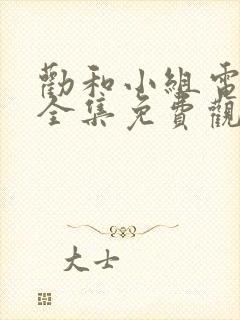 勸和小組電
全集免費觀
大士